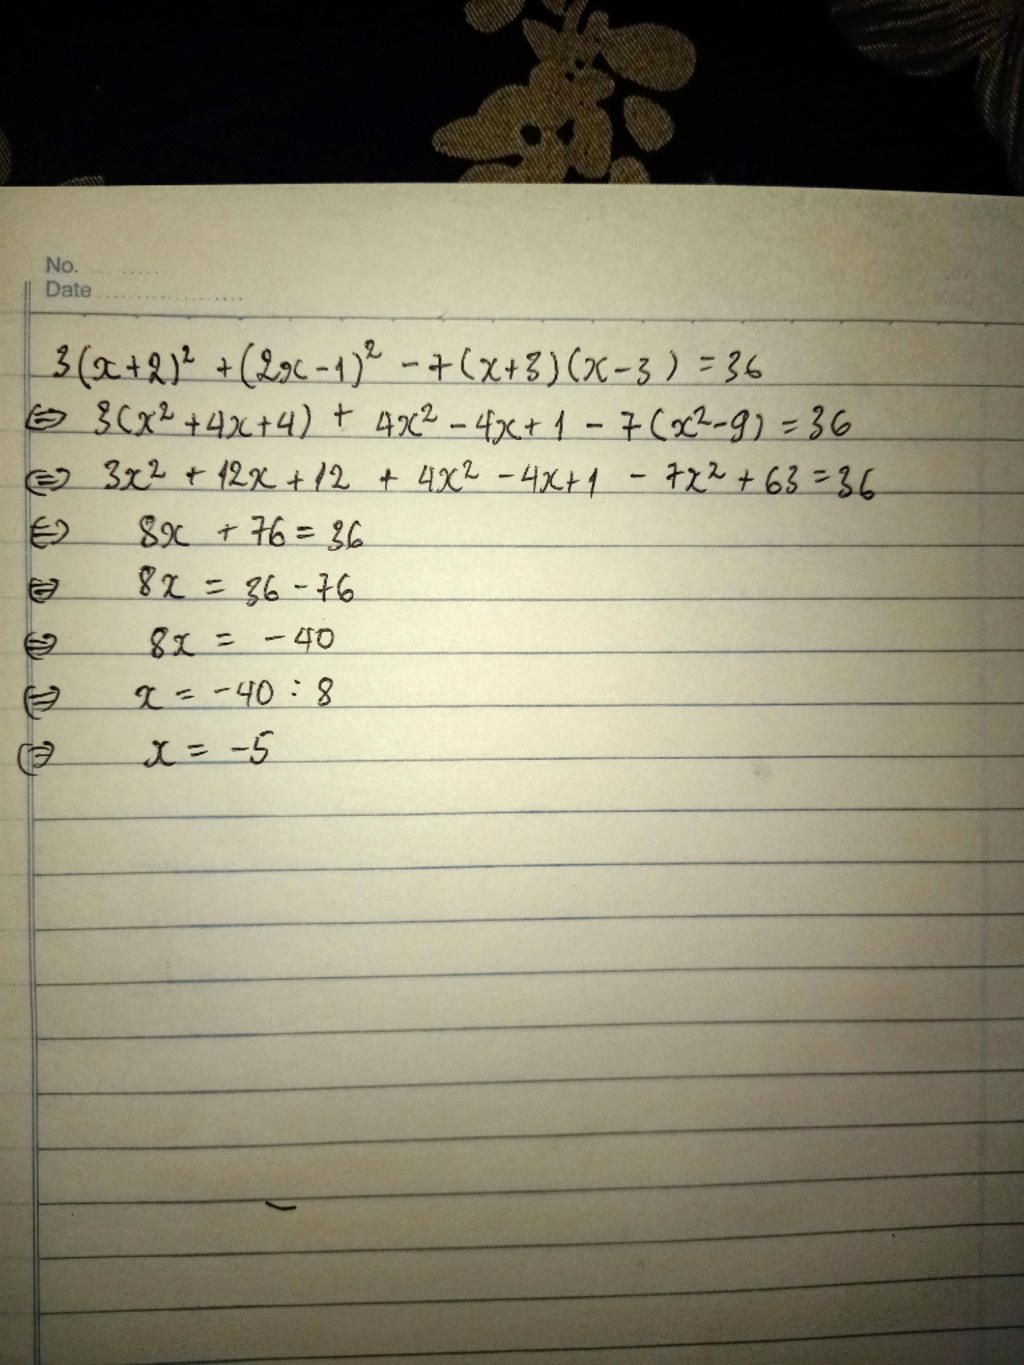 No. ... ......
Date ......................
3(x+2)² + (2x-1)² - 7(x+3)(x-3) = 36
⇔ 3(x² + 4x + 4) + 4x² - 4x + 1 - 7(x² - 9) = 36
⇔ 3x² + 12x + 12 + 4x² - 4x + 1 - 7x² + 63 = 36
⇔ 8x + 76 = 36
⇔ 8x = 36 - 76
⇔ 8x = -40
⇔ x = -40 : 8
⇔ x = -5